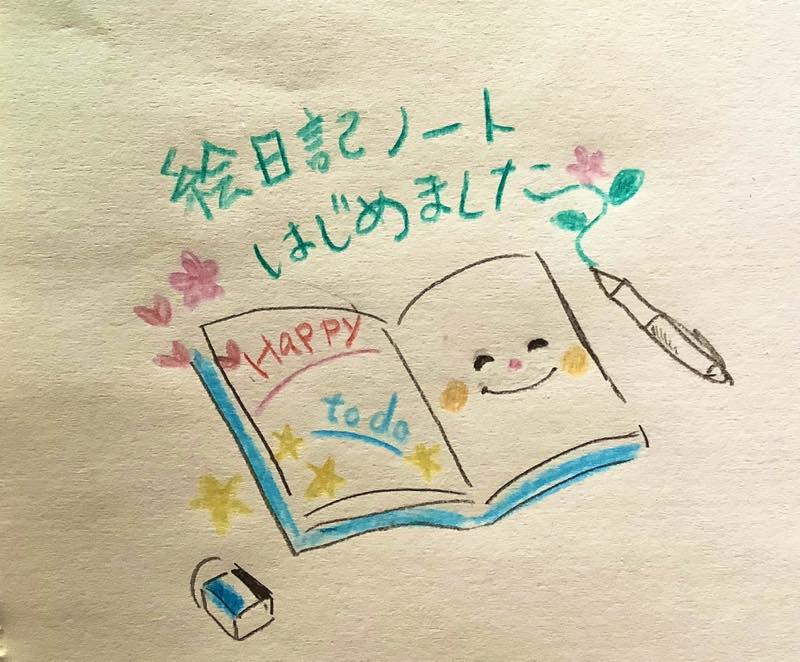 絵日記ノート
はじめました
Happy
to do